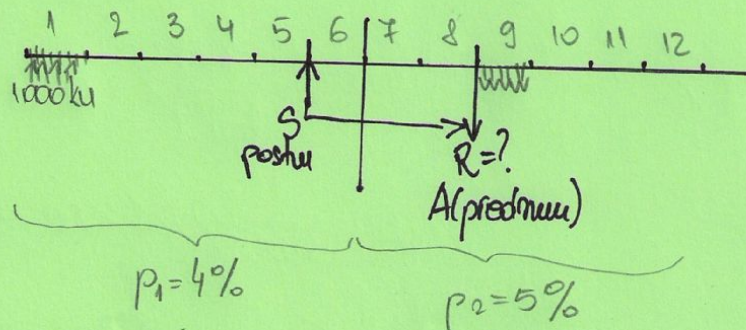 1 2 3 4 5 6 7 8 9 10 11 12
1000 ku
S
R=?
A(prednum)
p₁=4%
p₂=5%